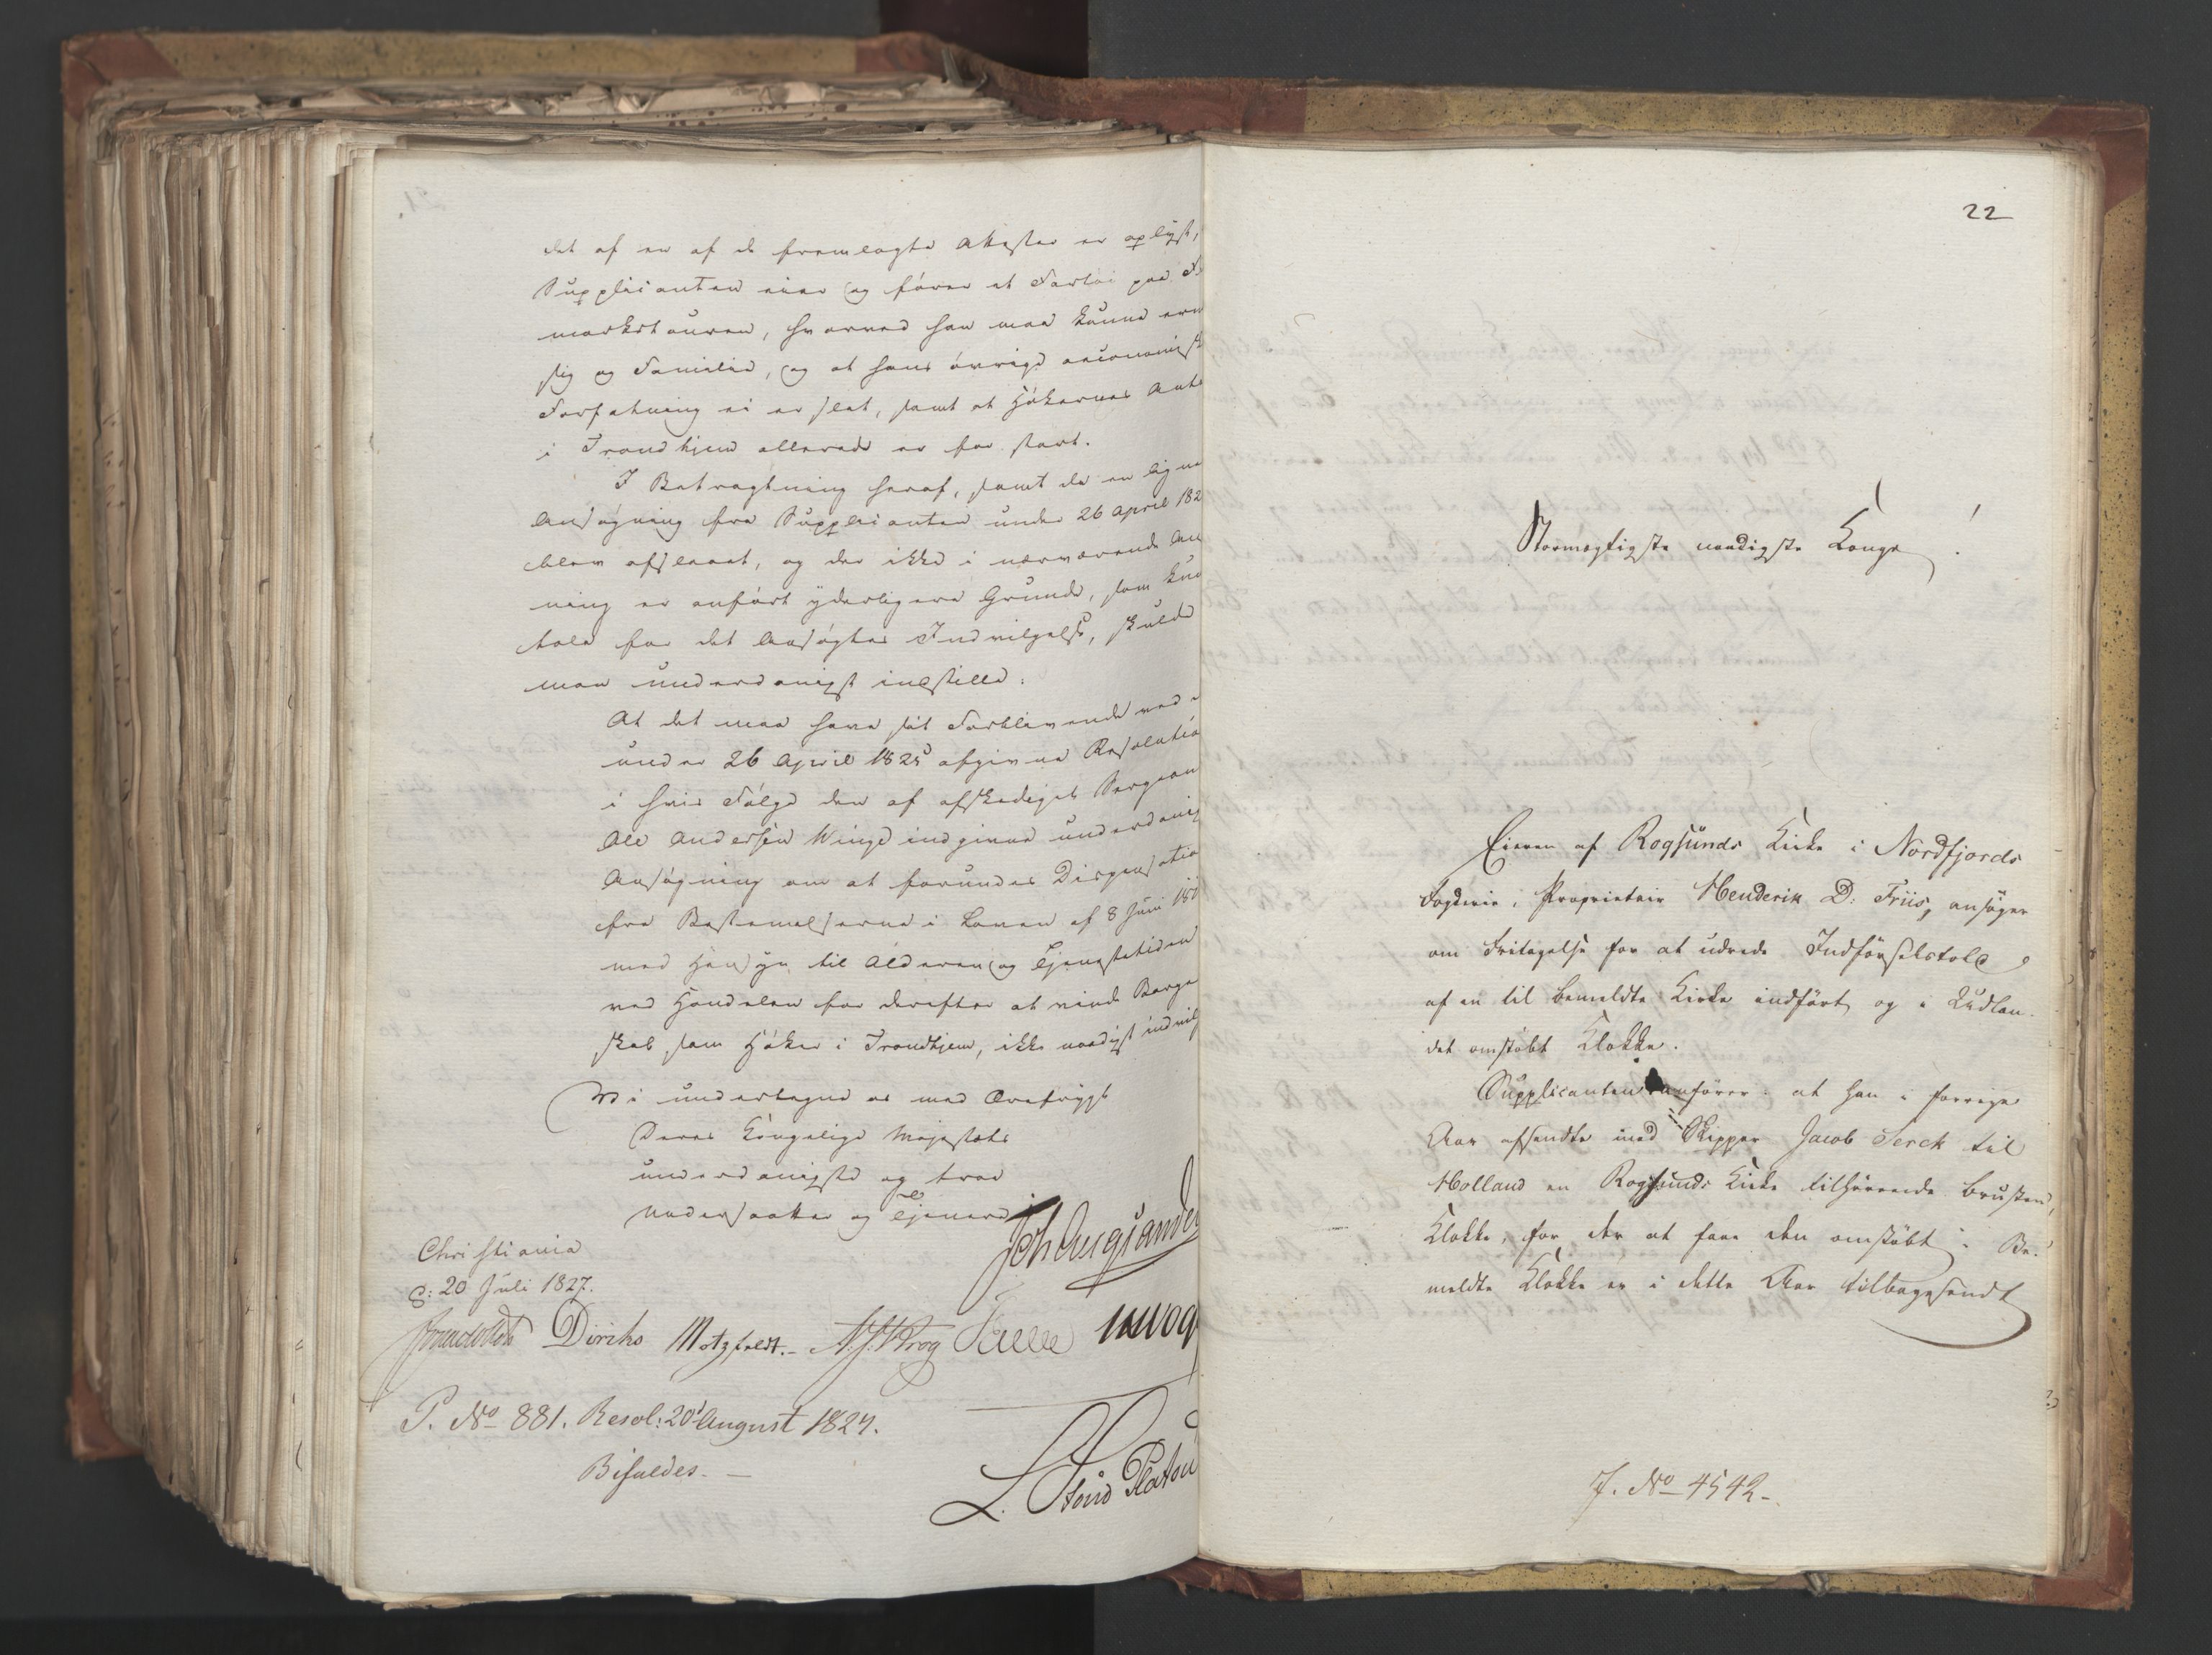 det af en af de fremlagte Attester er oplyst,
Supplicanten eier og fører et Fartøi paa
markstouren, hvorved han maa kunne
sig og Familie, og at hans øvrige oeconomisk
Forfatning ei er slet, samt at Høkernes Anta
i Trondhjem allerede er for stort.
I Betragtning heraf, samt da en ligne
Ansøgning fra Supplicanten under 26 April 182
blev afslaaet, og der ikke i nærværende An
ning er anført yderligere Grunde, som kun
tale for det Ansøgtes Indvilgelse, skulde
man underdanigst indstille:
At det maa have sit Forblivende ved
under 26 April 1825 afgivne Resolutio
i hvis Følge den af afskediget Sergean
Ole Andersen Winge indgivne underdanig
Ansøgning om at forundes Dispensatio
fra Bestemmelserne i Loven af 8 Juni 181
med Hensyn til Alderen og Tjenestetiden
ved Handelen for derefter at vinde Borge
skab som Høker i Trondhjem, ikke naadigst indvil
Vi undertegne os med Ærefrygt
Deres Kongelige Majestæts
underdanigste og troe
Undersaatter og Tjenere
Christiania
d: 20 Juli 1827.
Diriks Motzfeldt.- Krog
P. No 881. Resol: 20d August 1827.
Bifaldes. —
L. Stoud Platou
22
Stormægtigste naadigste Konge!
Eieren af Rogsunds Kirke i Nordfjords
Fogderie, Proprietair Henderik D: Friis, ansøger
om Fritagelse for at udrede Indførselstold
af en til bemeldte Kirke indført og i Udlan-
det omstøbt Klokke.
Supplicanten anfører: at han i forrige
Aar afsendte med Skipper Jacob Serck til
Holland en Rogsunds Kirke tilhørende brusten
Klokke, for der at faae den omstøbt. Be-
meldte Klokke er i dette Aar tilbagesendt
J. No 4542-